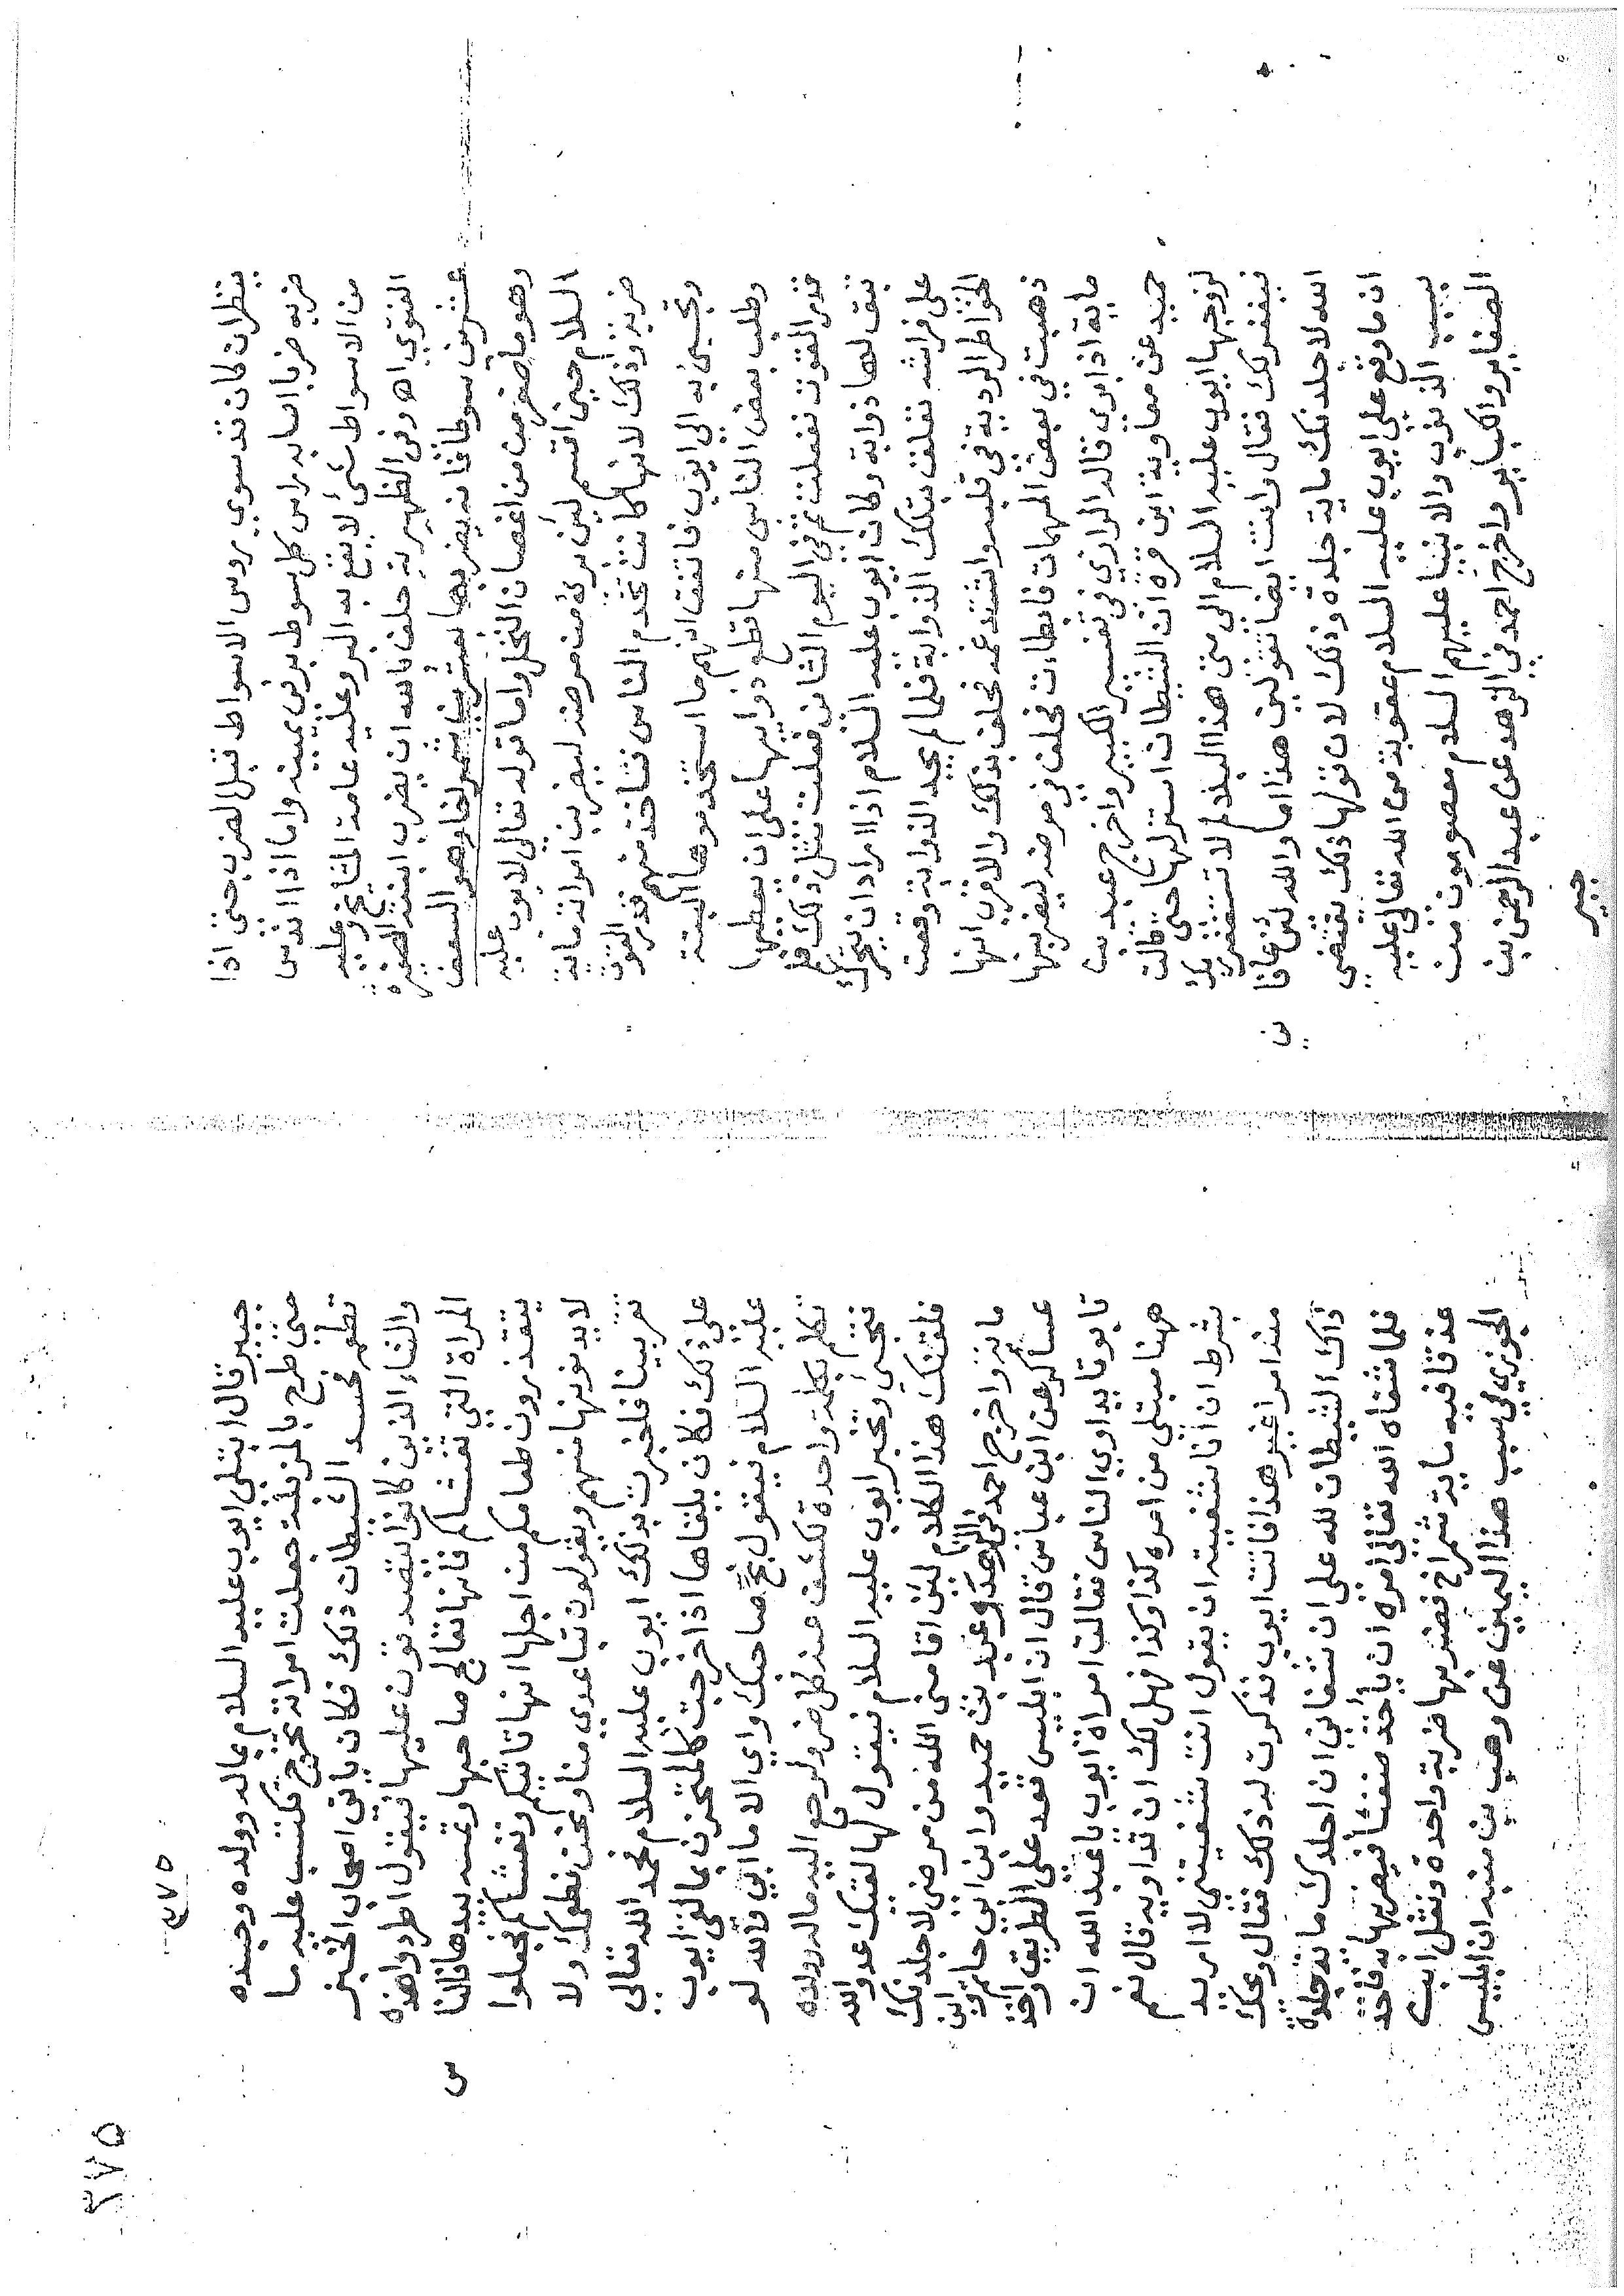 ينظر ان كان قد سوي روس الاسواط قبل الضرب حتى اذا
ضربه ضربا اصابه راس كل سوط برئ يمينه واما اذا اندس
من الاسواط شئ لا يقع به البر وعليه عامة المشايخ وعليه
الفتوي اه وفى الظهيرية حلف بالله ان يضرب ابنته الصغيرة
عشرين سوطا فانه يضربها بعشرين شمروخا وهو السعف
وهو ما صغر من اغصان النخل واما قوله تعالى لايوب عليه
السلام حين اقسم لين برئ من مرضه ليضربن امراته ماية
ضربة وذلك لانها كانت تخدم الناس فتاخذ منهم قدر القوت
وتجيئ به الى ايوب فاتفق انهم ما استخدموها البتة
وطلب بعض الناس منها قطع ذوابيها على ان يعطيها
قدر القوت ففعلت ثم في اليوم الثاني فعلت مثل ذلك فلم
يبق لها ذوابة وكان ايوب عليه السلام اذا اراد ان يتحرك
على فراشه تعلق بتلك الذوابة فلما لم يجد الذوابة وقعت
الخواطر الردية في قلبه واشتد غمه فحلف بذلك والاقرب انها
ذهبت في بعض المهمات فابطات فحلف في مرضه ليضربنها
ماية اذا برئ قاله الرازي في تفسير الكبير واخرج عبد بن
حميد عن معاوية ابن قرة ان الشيطان استزلها حتى قالت
لزوجها ايوب عليه السلام الى متى هذا البلاء لم لا تستغفر ربك
فيغفر لك فقال وانت ايضا تقولين هذا اما والله لئن عافا
ن
الله لاجلدنك ماية جلدة وذلك لان قولها ذلك يقتضي
ان ما وقع على ايوب عليه السلام عقوبة من الله تعالى عليه
بسبب الذنوب والانبيا عليهم السلام معصومون من
الصغاير والكباير واخرج احمد في الزهد عن عبد الرحمن بن
جبير
٢٧٥
٢٧٥
جبير قال ابتلي ايوب عليه السلام بماله وولده وجسده
حتى طرح بالمزبلة جعلت امراته تخرج تكتسب عليه ما
تطعمه فحسد الشيطان ذلك فكان ياتى اصحاب الخبز
والشاء الذين كانوا يتصدقون عليها فيقول اطردوا هذه
المراة التي تغشاكم فانها تعالج صاحبها وتمسه بيدها فالنا
س
يتقذرون طعامكم من اجلها انها تاتيكم وتغشاكم فجعلوا
لا يدنونها منهم ويقولون تباعدي منا ونحن نطعمك ولا
تقربينا فاخبرت بذلك ايوب عليه السلام فحمد الله تعالى
على ذلك فكان يلقاها اذا خرجت كالمتحزن بما لقي ايوب
عليه السلام فيقول لج صاحبك وابي الا ما ابي فالله لو
تكلم بكلمة واحدة لكشف عنه كل ضر ولرجع اليه ماله وولده
فتجئ وتخبر ايوب عليه السلام فيقول لها لقيك عدو الله
فلقنك هذا الكلام لئن اقامنى الله من مرضي لاجلدنك
ماية واخرج احمد في الزهد وعبد بن حميد وابن ابى حاتم وابن
عساكر عن ابن عباس قال ان ابليس قعد على الطريق واخذ
تابوتا يداوي الناس فقالت امراة ايوب يا عبد الله ان
ههنا مبتلى من امره كذا وكذا فهل لك ان تداويه قال نعم
بشرط ان انا شفيته ان يقول انت شفيتنى لا اريد
منه امرا غير هذا فاتت ايوب فذكرت له ذلك فقال ويحك
ذاك الشيطان لله على ان شفاني ان اجلدك ماية جلدة
فلما شفاه الله تعالى امره ان ياخذ ضغثا فيضربها به فاخذ
عذقا فيه ماية شمراخ فضربها ضربة واحدة ونقل ابن
الجوزي في سبب هذا اليمين عن وهب بن منبه ان ابليس